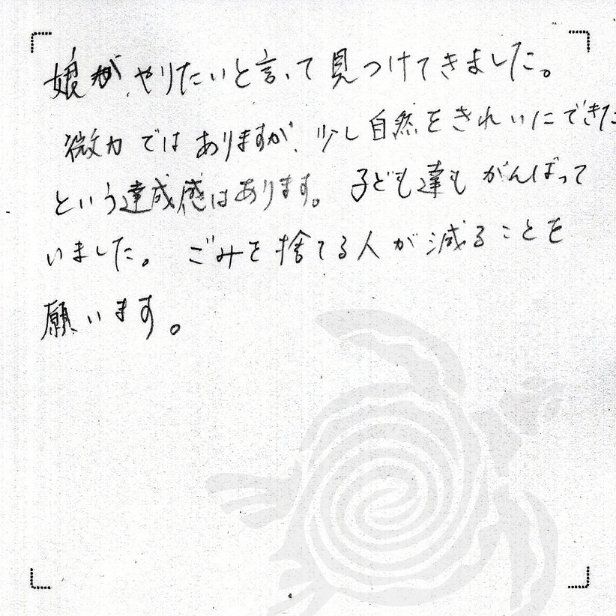 娘が、やりたいと言って見つけてきました。
微力ではありますが、少し自然をきれいにできた
という達成感はあります。子ども達もがんばって
いました。ごみを捨てる人が減ることを
願います。